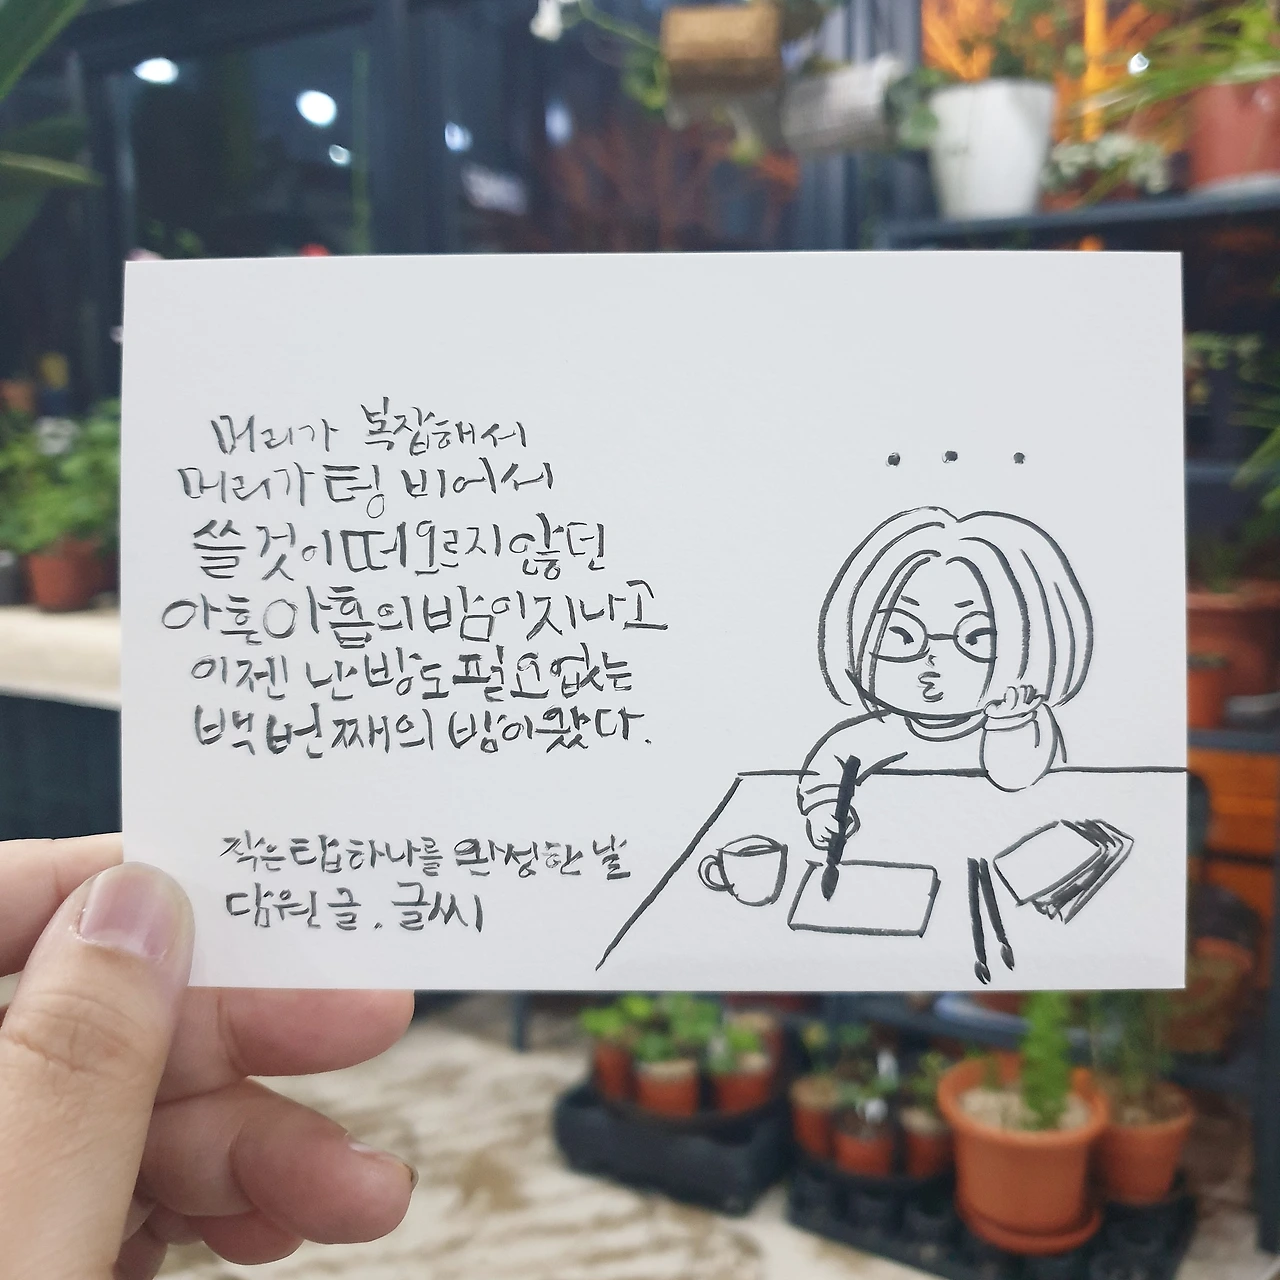 머리가 복잡해서
머리가 텅 비어서
쓸 것이 떠오르지 않던
아흔아홉의 밤이 지나고
이젠 난방도 필요없는
백 번째의 밤이 왔다.
작은 탑 하나를 완성한 날
담원 글. 글씨